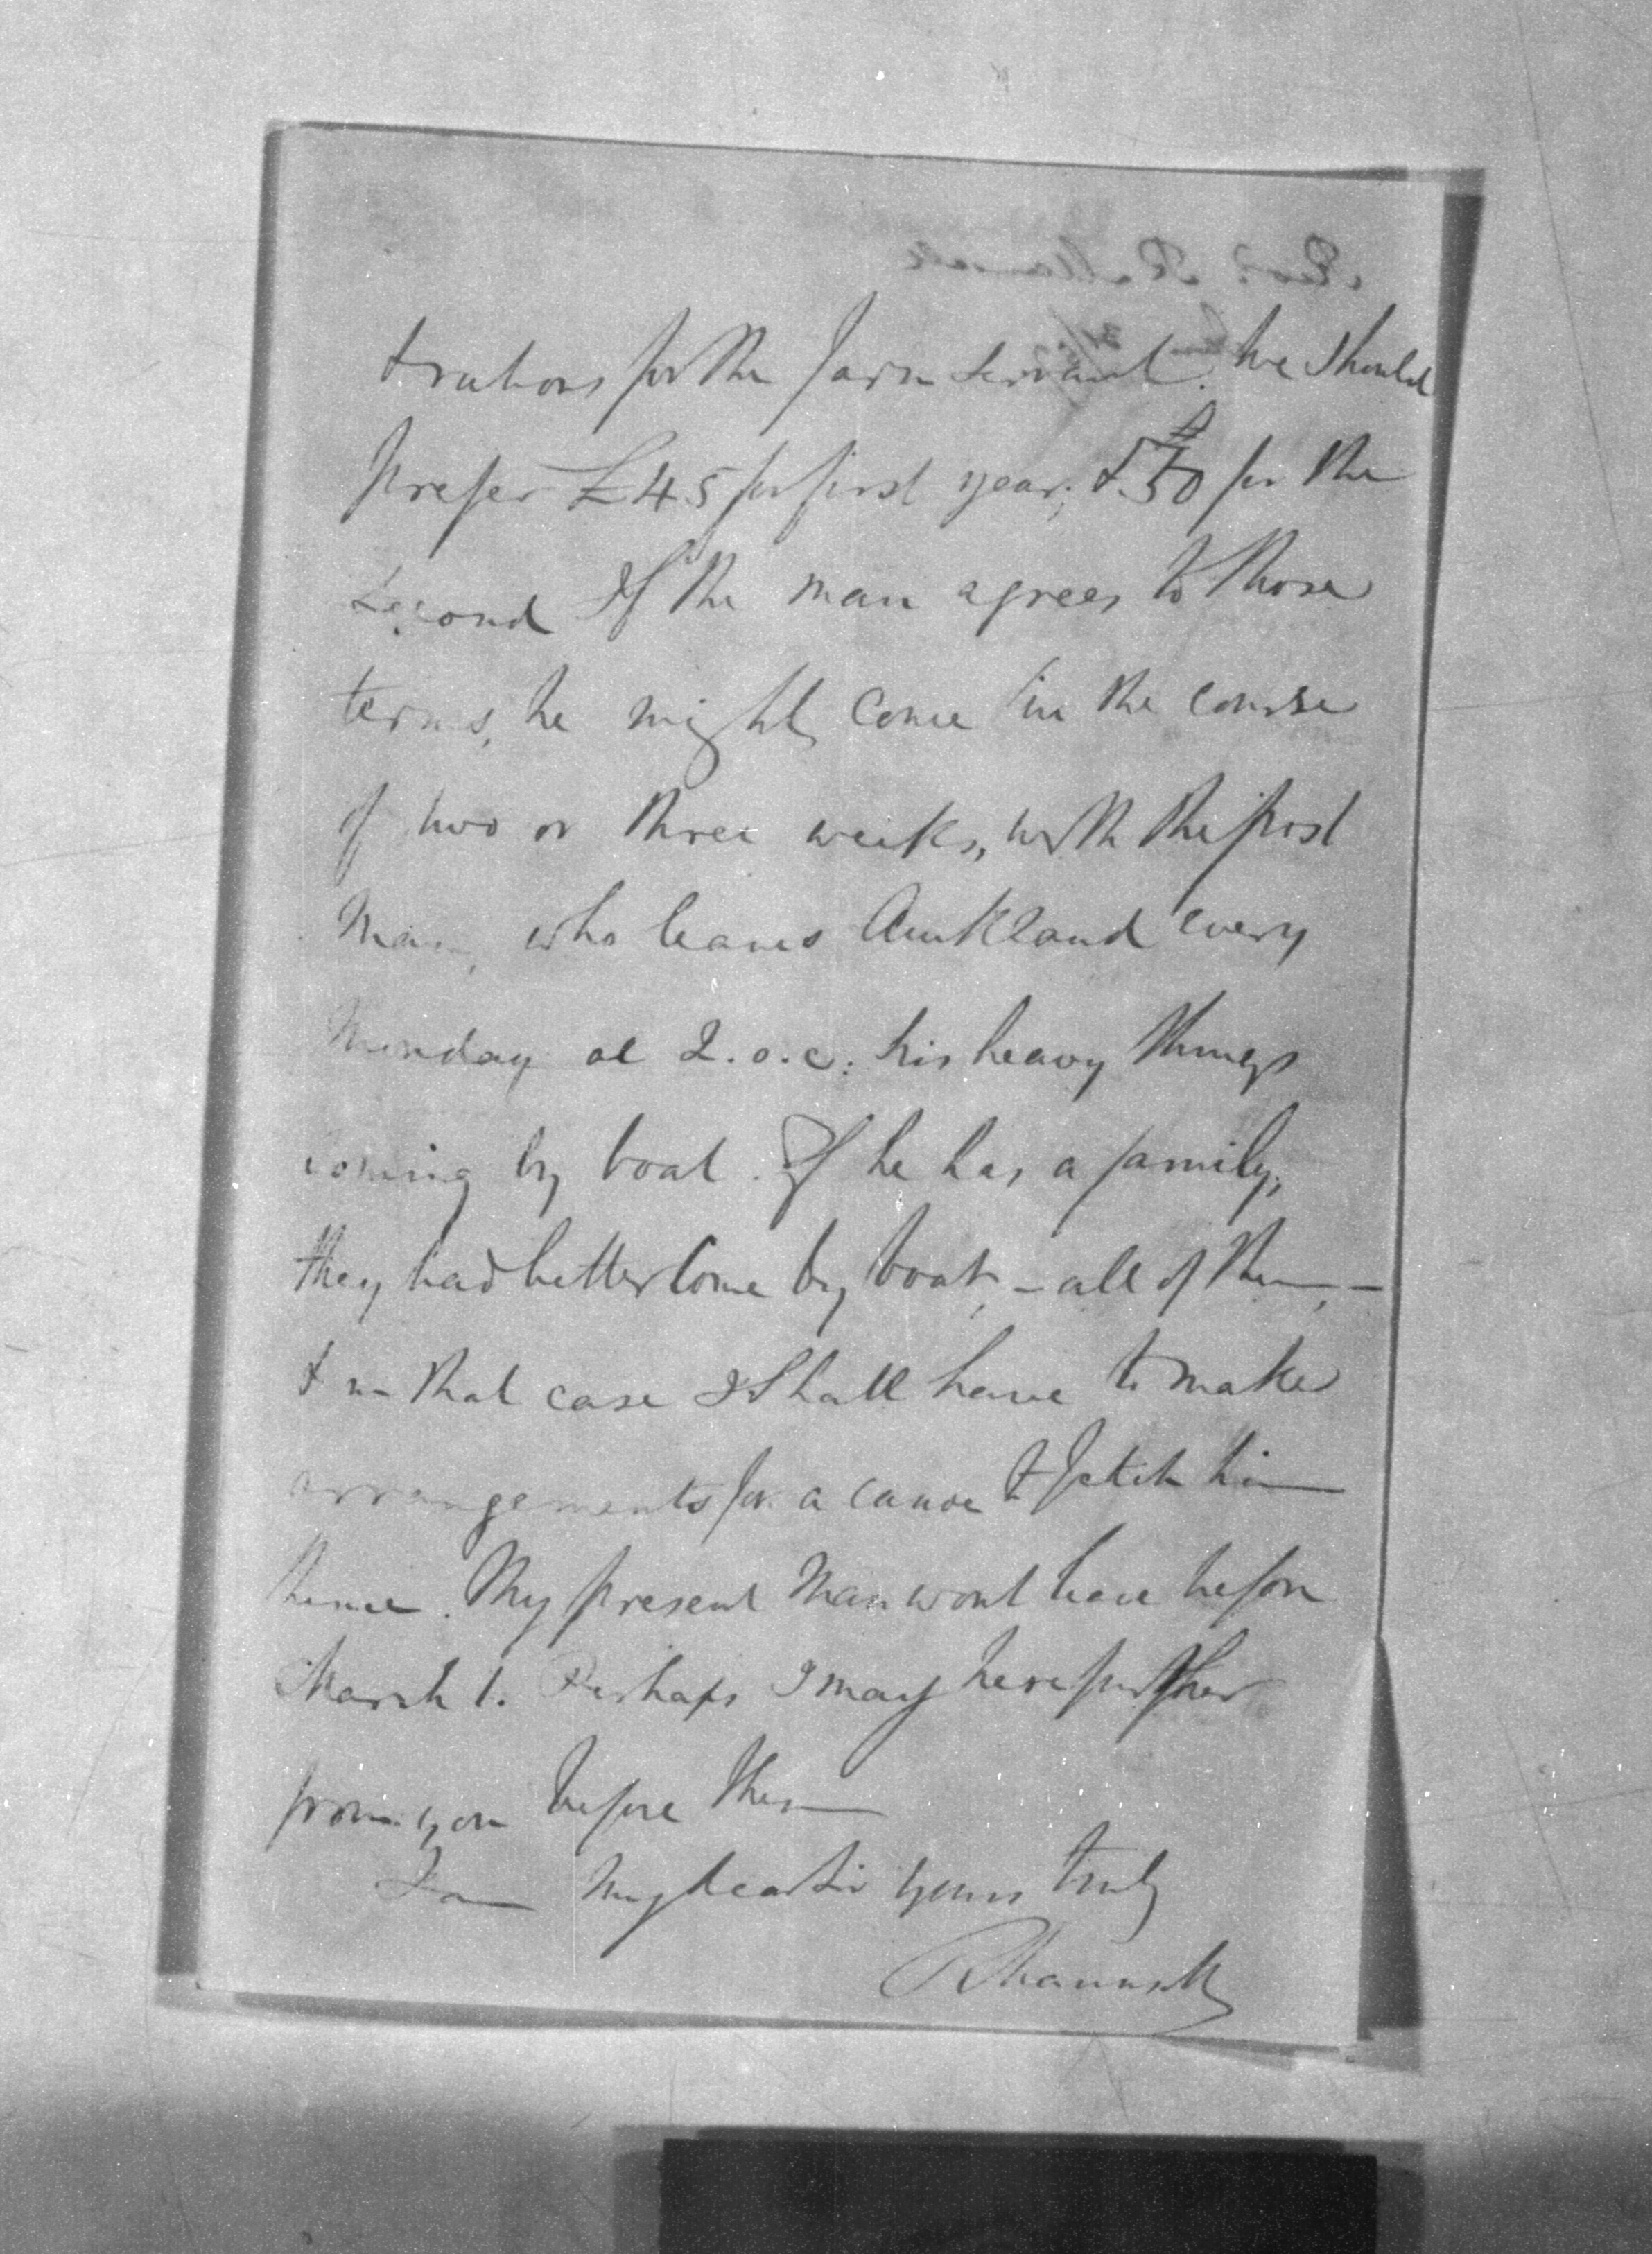 trations for the farm servant. We should
prefer £45 for first year, & £50 for the
second If the man agrees to those
terms, he might come in the course
of two or three weeks, with the post
man, who leaves Auckland every
Monday at 2.o.c: his heavy things
coming by boat. If he has a family,
they had better come by boat, - all of them, -
& in that case I shall have to make
arrangements for a canoe to fetch him
thence. My present man wont leave before
March 1. Perhaps I may here further
from you before then
I am my dear Sir yours truly
R Maunsell